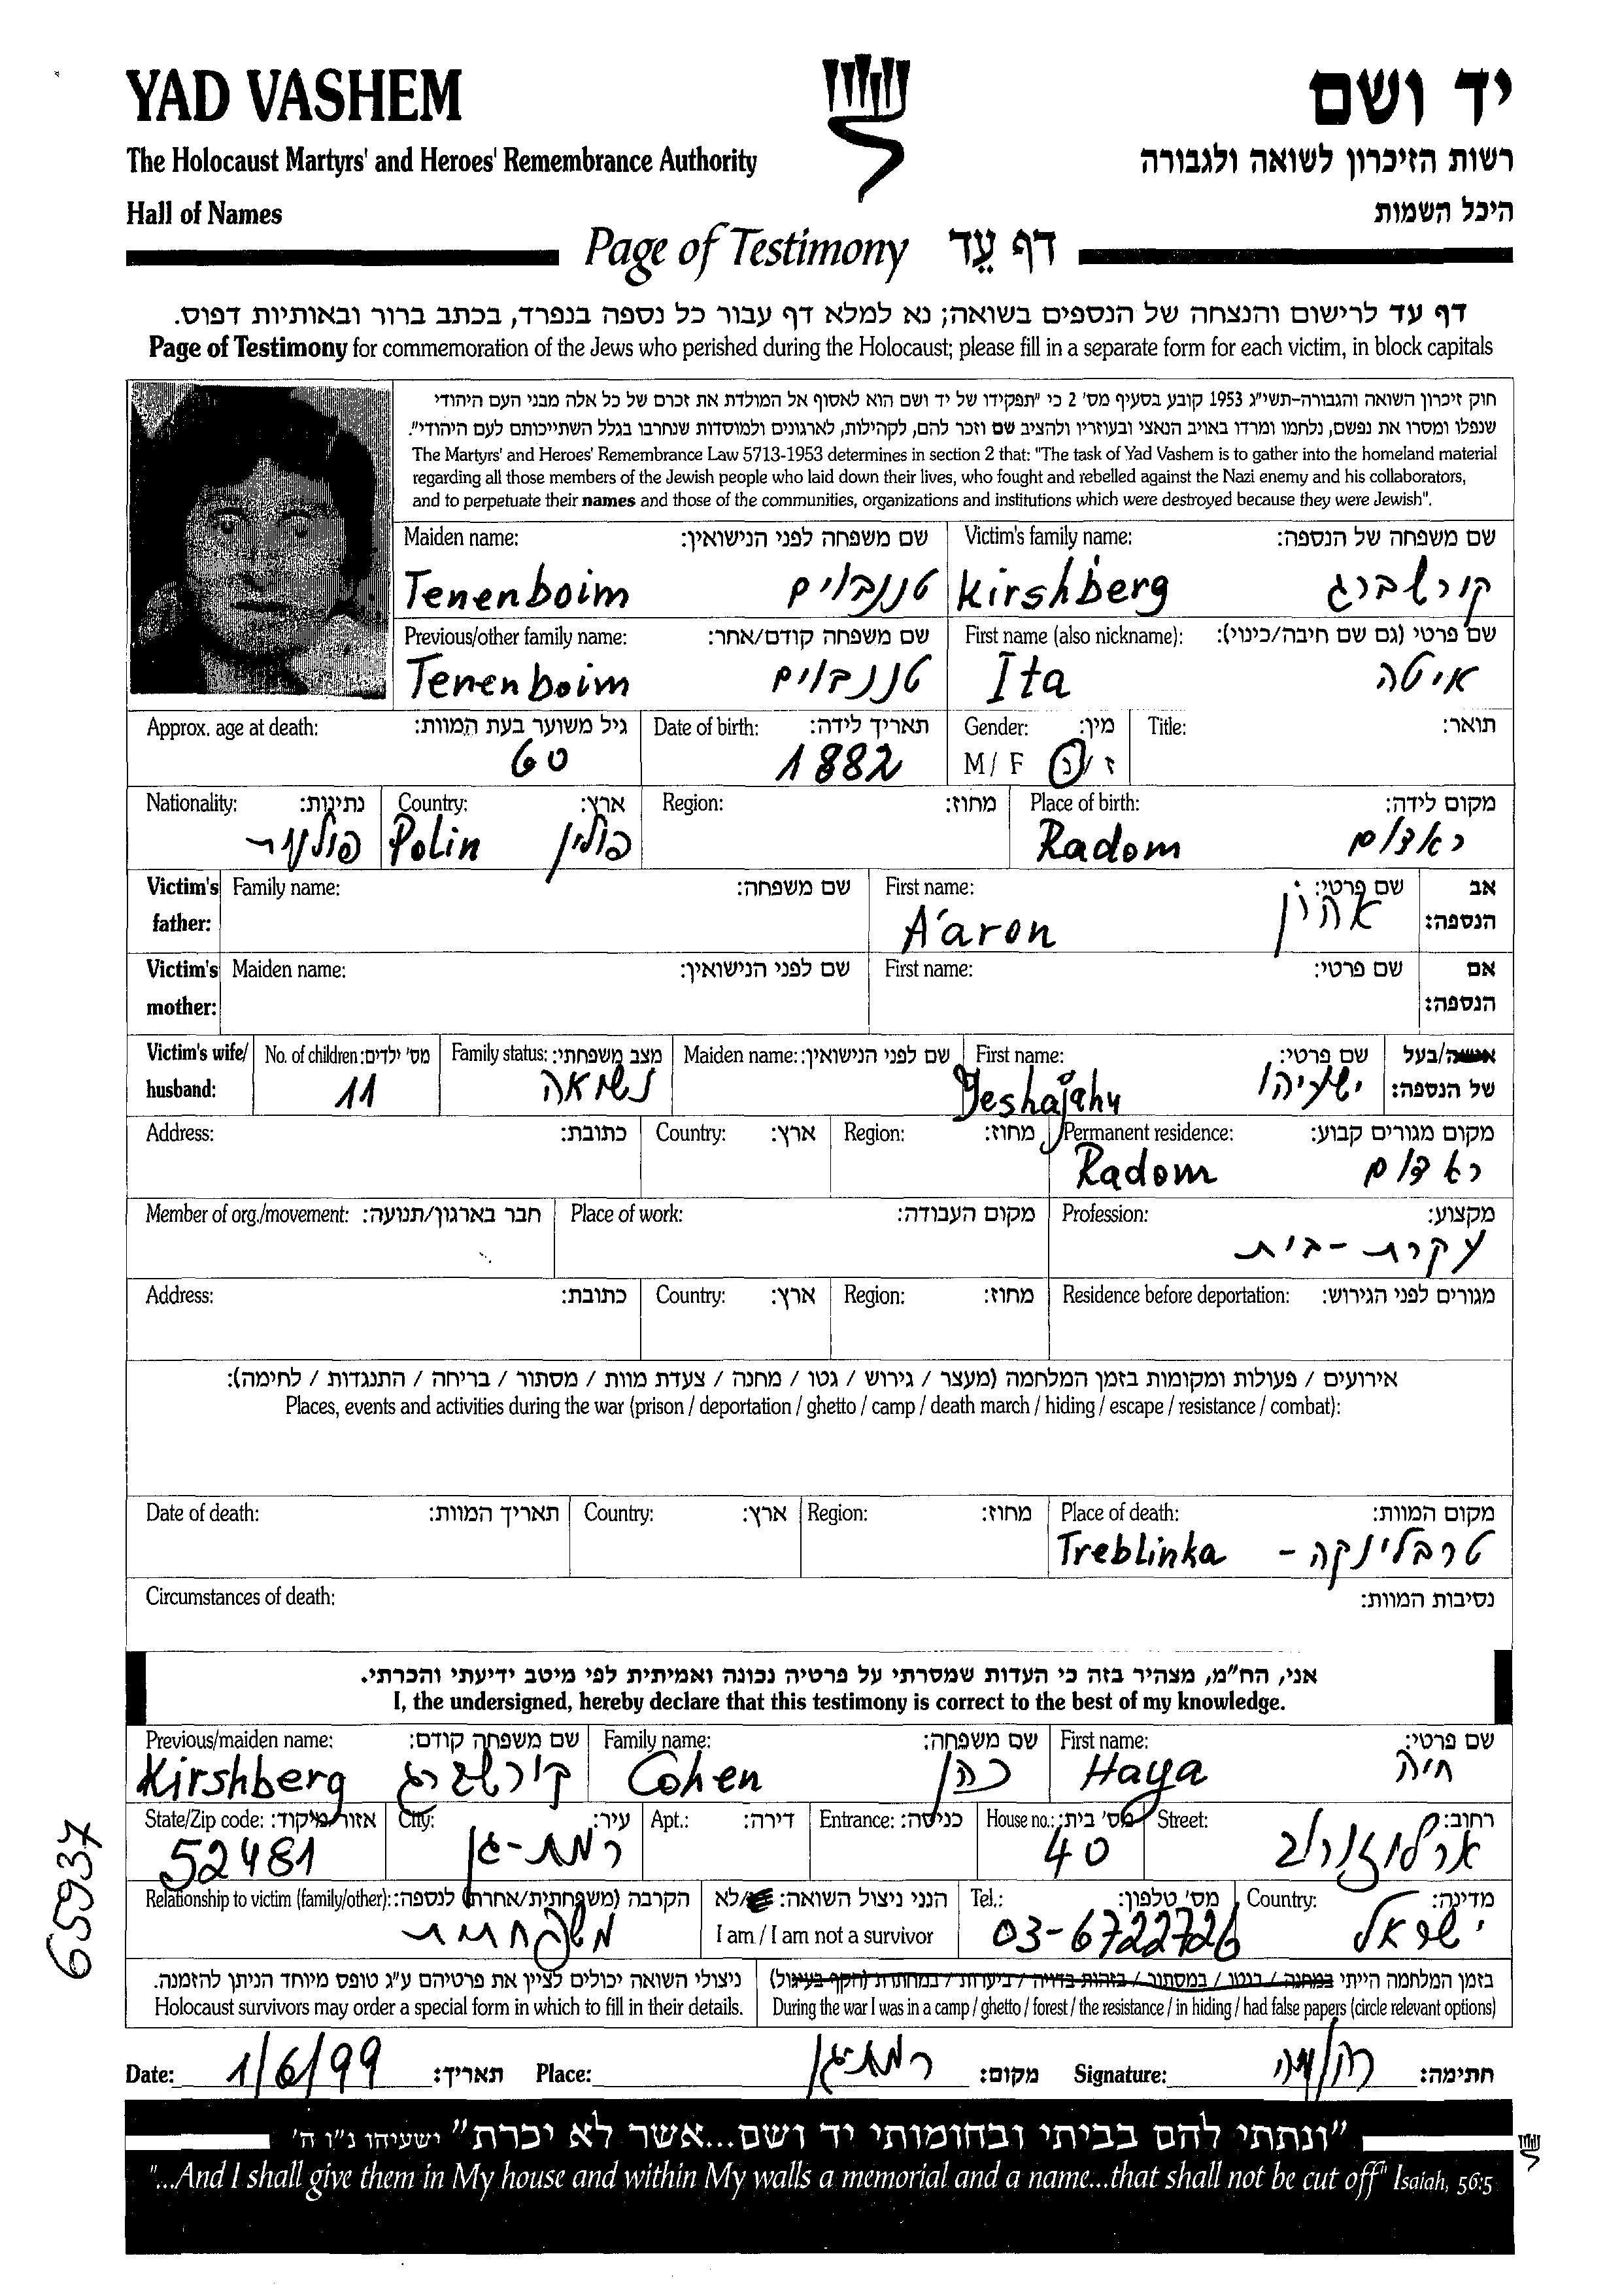 YAD VASHEM
יד ושם
The Holocaust Martyrs' and Heroes' Remembrance Authority
רשות הזיכרון לשואה ולגבורה
Hall of Names
היכל השמות
Page of Testimony דף עֵד
דף עד לרישום והנצחה של הנספים בשואה; נא למלא דף עבור כל נספה בנפרד, בכתב ברור ובאותיות דפוס.
Page of Testimony for commemoration of the Jews who perished during the Holocaust; please fill in a separate form for each victim, in block capitals
חוק זיכרון השואה והגבורה-תשי"ג 1953 קובע בסעיף מס' 2 כי "תפקידו של יד ושם הוא לאסוף אל המולדת את זכרם של כל אלה מבני העם היהודי
שנפלו ומסרו את נפשם, נלחמו ומרדו באויב הנאצי ובעוזריו ולהציב שם וזכר להם, לקהילות, לארגונים ולמוסדות שנחרבו בגלל השתייכותם לעם היהודי".
The Martyrs' and Heroes' Remembrance Law 5713-1953 determines in section 2 that: "The task of Yad Vashem is to gather into the homeland material
regarding all those members of the Jewish people who laid down their lives, who fought and rebelled against the Nazi enemy and his collaborators,
and to perpetuate their names and those of the communities, organizations and institutions which were destroyed because they were Jewish".
Maiden name: שם משפחה לפני הנישואין: Victim's family name: שם משפחה של הנספה:
Tenenboim טננבוים Kirshberg קורשברג
Previous/other family name: שם משפחה קודם/אחר: First name (also nickname): שם פרטי (גם שם חיבה/כינוי):
Tenenboim טננבוים Ita איטה
Approx. age at death: גיל משוער בעת המוות: Date of birth: תאריך לידה: Gender: מין: Title: תואר:
60 1882 M / F ז / נ
Nationality: נתינות: Country: ארץ: Region: מחוז: Place of birth: מקום לידה:
Polin פולין Radom ראדום
Victim's father: Family name: שם משפחה: First name: שם פרטי: אב הנספה:
A'aron אהרון
Victim's mother: Maiden name: שם לפני הנישואין: First name: שם פרטי: אם הנספה:
Victim's wife/ husband: No. of children: מס' ילדים: Family status: מצב משפחתי: Maiden name: שם לפני הנישואין: First name: שם פרטי: אישה/בעל של הנספה:
11 נשואה Jeshajahu ישעיהו
Address: כתובת: Country: ארץ: Region: מחוז: Permanent residence: מקום מגורים קבוע:
Radom ראדום
Member of org./movement: חבר בארגון/תנועה: Place of work: מקום העבודה: Profession: מקצוע:
עקרת-בית
Address: כתובת: Country: ארץ: Region: מחוז: Residence before deportation: מגורים לפני הגירוש:
אירועים / פעולות ומקומות בזמן המלחמה (מעצר / גירוש / גטו / מחנה / צעדת מוות / מסתור / בריחה / התנגדות / לחימה):
Places, events and activities during the war (prison / deportation / ghetto / camp / death march / hiding / escape / resistance / combat):
Date of death: תאריך המוות: Country: ארץ: Region: מחוז: Place of death: מקום המוות:
Treblinka טרבלינקה -
Circumstances of death: נסיבות המוות:
אני, הח"מ, מצהיר בזה כי העדות שמסרתי על פרטיה נכונה ואמיתית לפי מיטב ידיעתי והכרתי.
I, the undersigned, hereby declare that this testimony is correct to the best of my knowledge.
Previous/maiden name: שם משפחה קודם: Family name: שם משפחה: First name: שם פרטי:
Kirshberg קירשברג Cohen כהן Haya חיה
State/Zip code: אזור/מיקוד: City: עיר: Apt.: דירה: Entrance: כניסה: House no.: מס' בית: Street: רחוב:
52481 רמת-גן 40 ארלוזורוב
Relationship to victim (family/other): הקרבה (משפחתית/אחרת) לנספה: הנני ניצול השואה: /לא Tel.: מס' טלפון: Country: מדינה:
משפחתית I am / I am not a survivor 03-6722726 ישראל
ניצולי השואה יכולים לציין את פרטיהם ע"ג טופס מיוחד הניתן להזמנה. בזמן המלחמה הייתי במחנה / בגטו / במסתור / בזהות בדויה / ביערות / במחתרת (הקף בעיגול)
Holocaust survivors may order a special form in which to fill in their details. During the war I was in a camp / ghetto / forest / the resistance / in hiding / had false papers (circle relevant options)
Date: 1/6/99 תאריך: Place: רמת-גן מקום: Signature: חתימה:
"ונתתי להם בביתי ובחומותי יד ושם...אשר לא יכרת" ישעיהו נ"ו ה'
"...And I shall give them in My house and within My walls a memorial and a name...that shall not be cut off" Isaiah, 56:5
65937